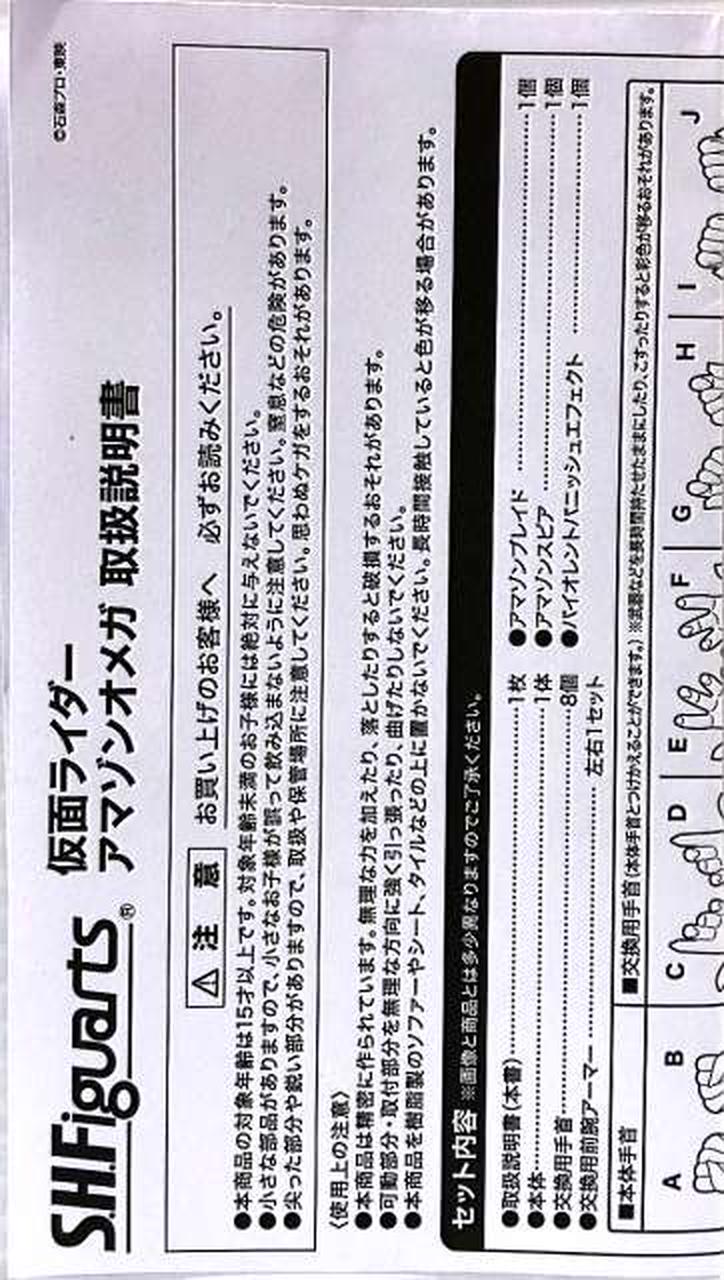 ©石森プロ・東映
S.H.Figuarts® 仮面ライダー
アマゾンオメガ 取扱説明書
⚠注 意 お買い上げのお客様へ 必ずお読みください。
●本商品の対象年齢は15才以上です。対象年齢未満のお子様には絶対に与えないでください。
●小さな部品がありますので、小さなお子様が誤って飲み込まないように注意してください。窒息などの危険があります。
●尖った部分や鋭い部分がありますので、取扱や保管場所に注意してください。思わぬケガをするおそれがあります。
〈使用上の注意〉
●本商品は精密に作られています。無理な力を加えたり、落としたりすると破損するおそれがあります。
●可動部分・取付部分を無理な方向に強く引っ張ったり、曲げたりしないでください。
●本商品を樹脂製のソファーやシート、タイルなどの上に置かないでください。長時間接触していると色が移る場合があります。
セット内容 ※画像と商品とは多少異なりますのでご了承ください。
●取扱説明書(本書)……1枚
●本体……1体
●交換用手首……8個
●交換用前腕アーマー……左右1セット
●アマゾンブレイド……1個
●アマゾンスピア……1個
●バイオレントパニッシュエフェクト……1個
■本体手首
■交換用手首(本体手首とつけかえることができます。)※武器などを長時間持たせたままにしたり、こすったりすると彩色が移るおそれがあります。
A B C D E F G H I J